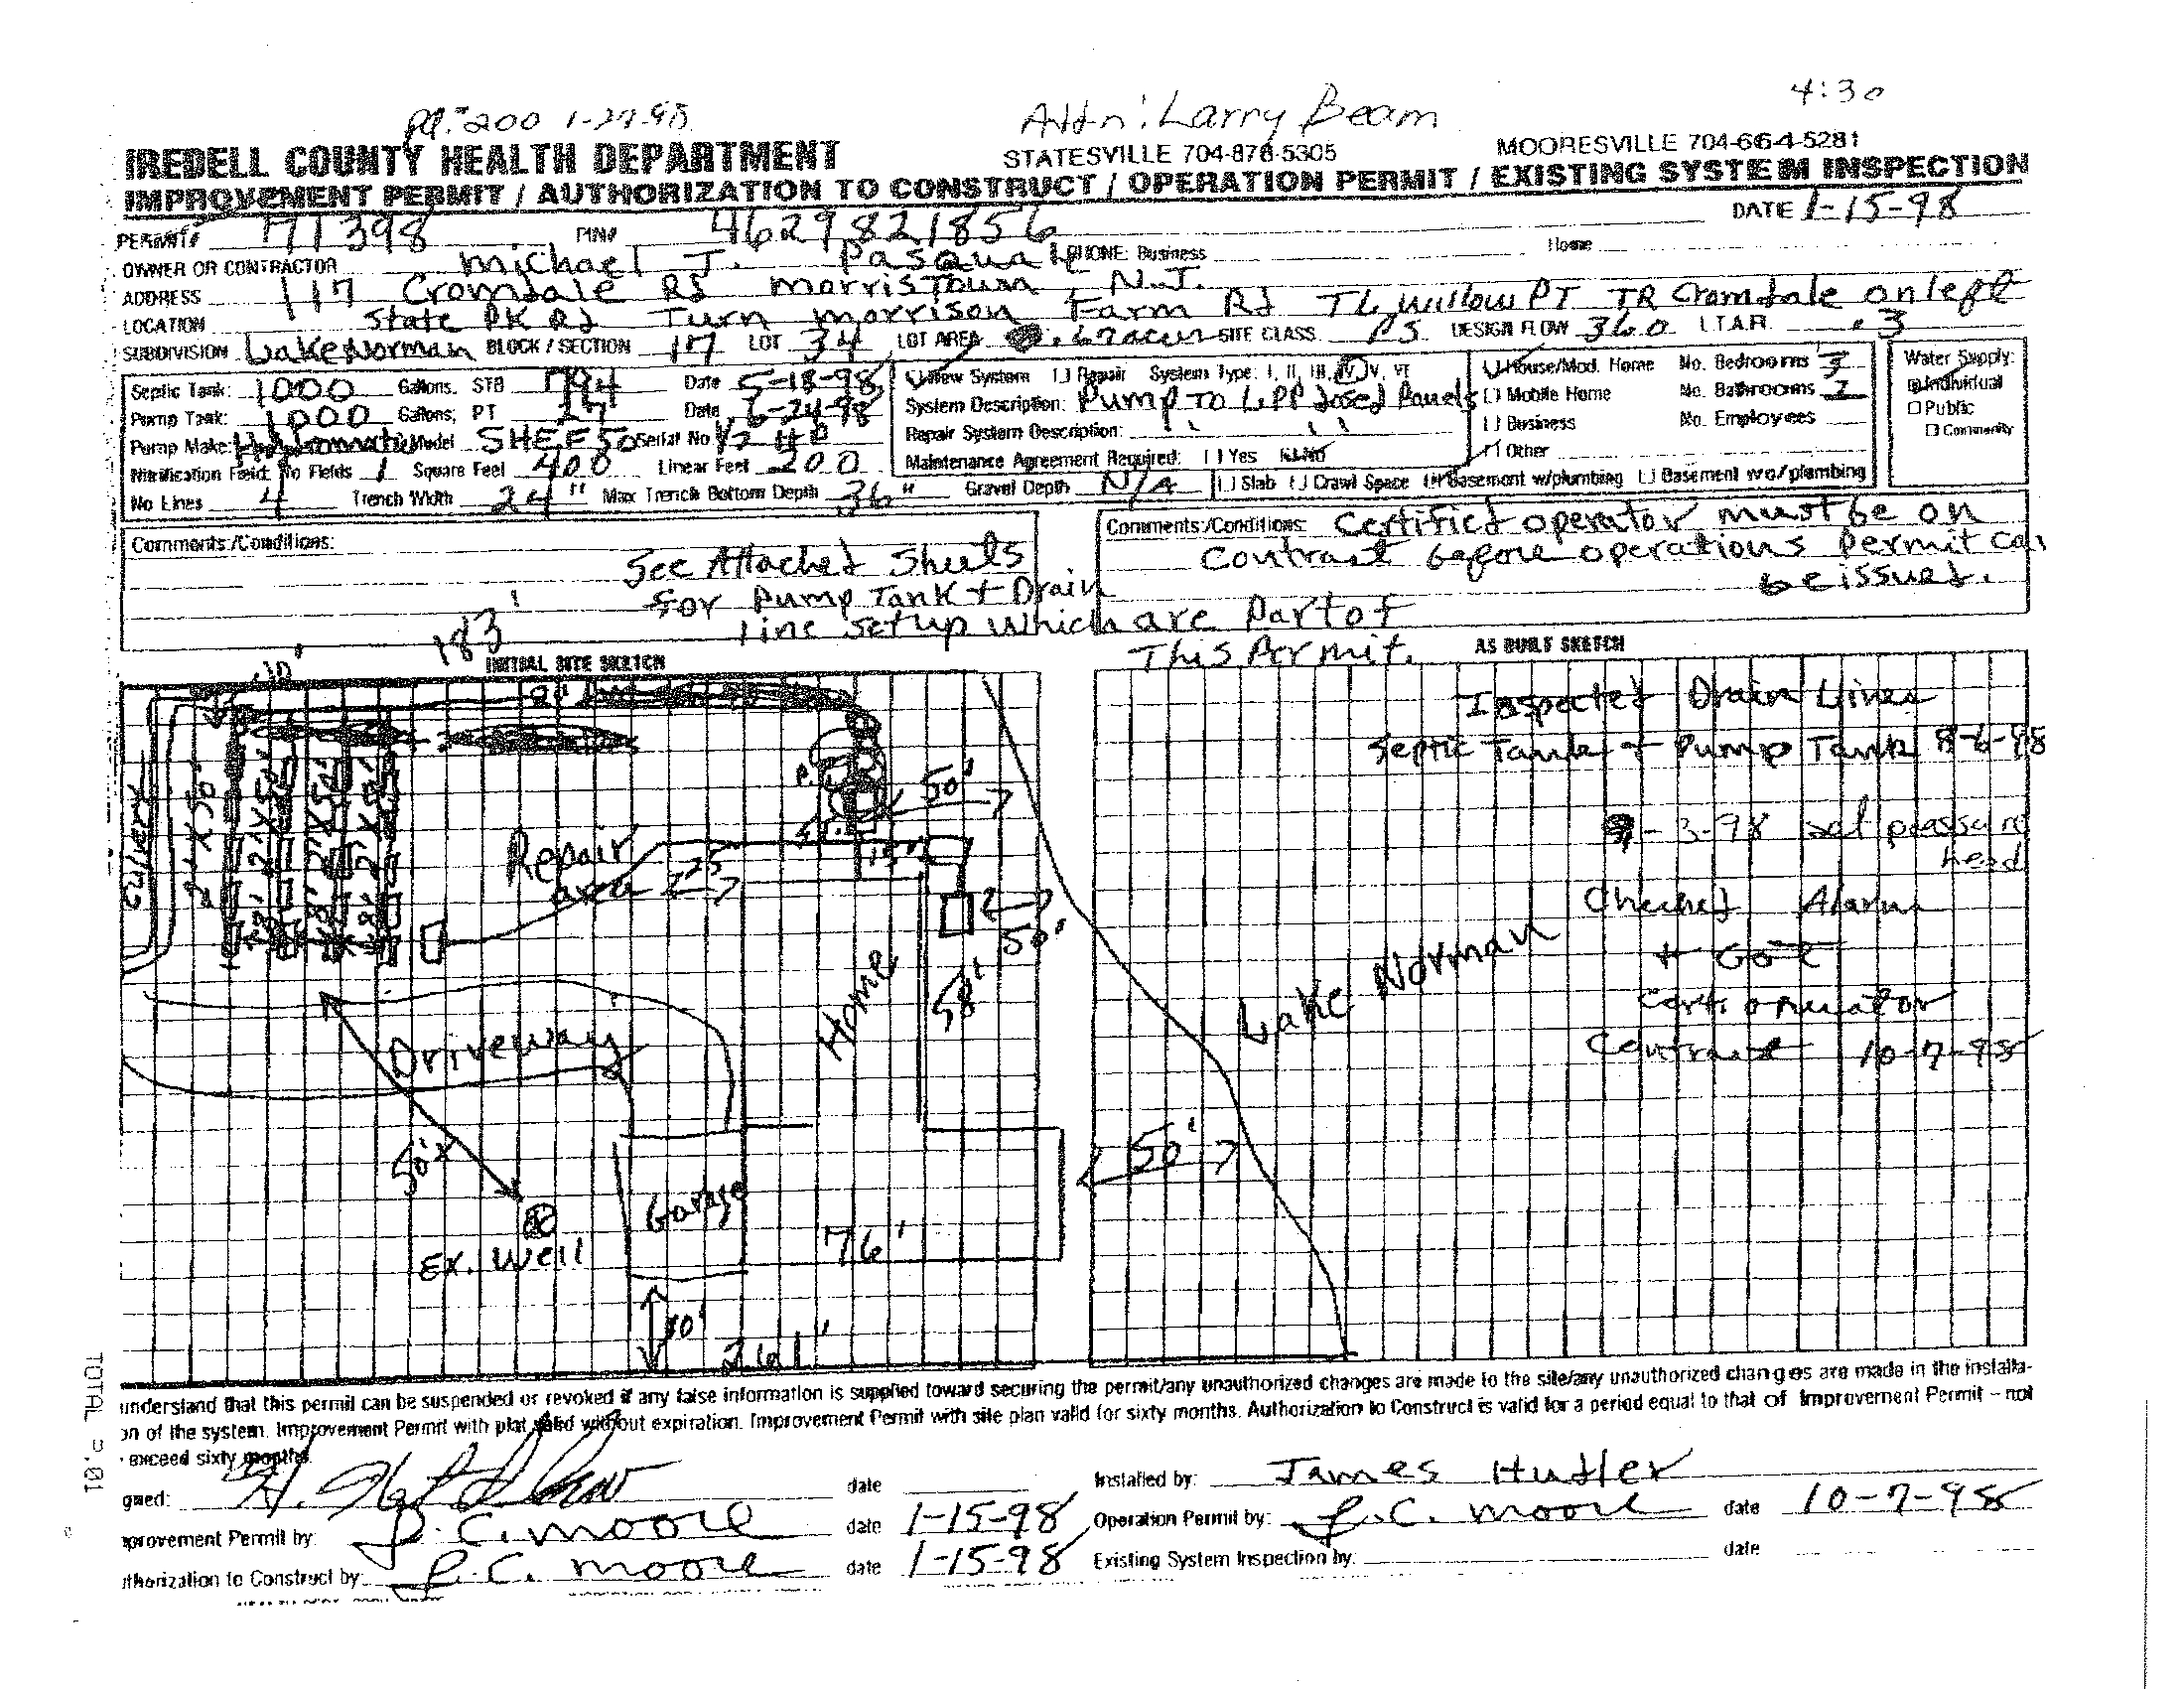 Pd. $200 1-27-98
Attn: Larry Beam
4:30
IREDELL COUNTY HEALTH DEPARTMENT
STATESVILLE 704-878-5305
MOORESVILLE 704-664-5281
IMPROVEMENT PERMIT / AUTHORIZATION TO CONSTRUCT / OPERATION PERMIT / EXISTING SYSTEM INSPECTION
PERMIT# 71398 PIN# 4629821856 DATE 1-15-98
OWNER OR CONTRACTOR Michael J. Pasquale PHONE: Business Home
ADDRESS 117 Cromdale Rd Morristown, N.J.
LOCATION State Pk Rd Turn Morrison Farm Rd TL Willow PT TR Cromdale on left
SUBDIVISION Lake Norman BLOCK / SECTION 17 LOT 34 LOT AREA .67 acres SITE CLASS PS DESIGN FLOW 360 L.T.A.R. .3
Septic Tank: 1000 Gallons. STB 794 Date 5-18-98
Pump Tank: 1000 Gallons; PT 27 Date 6-24-98
Pump Make: Hydromatic Model SHEF50 Serial No 1/2 HP
Nitrification Field: No Fields 1 Square Feet 400 Linear Feet 200
No Lines 4 Trench Width 24" Max Trench Bottom Depth 36" Gravel Depth N/A
New System Repair System Type: I, II, III, IV, V, VI
System Description: Pump to LPP dosed Panels
Repair System Description: " "
Maintenance Agreement Required: Yes No
House/Mod. Home No. Bedrooms 3
Mobile Home No. Bathrooms 2
Business No. Employees
Other
Slab Crawl Space Basement w/plumbing Basement wo/plumbing
Water Supply:
Individual
Public
Community
Comments:/Conditions:
See Attached Sheets
for Pump Tank + Drain
line setup which are Part of
This Permit.
Comments:/Conditions: Certified operator must be on
Contract before operations permit can
be issued.
183'
INITIAL SITE SKETCH
10'
2'X50'
Repair
area
25'
15'
50'
50'
58'
Home
Driveway
50'+
Ex. Well
Garage
76'
10'
261'
50'
Lake Norman
AS BUILT SKETCH
Inspected Drain Lines
Septic Tank + Pump Tank 8-6-98
9-3-98 set pressure
head
Checked Alarm
+ Got
Cert. operator
Contract 10-7-98
understand that this permit can be suspended or revoked if any false information is supplied toward securing the permit/any unauthorized changes are made to the site/any unauthorized changes are made in the installa-
on of the system. Improvement Permit with plat valid without expiration. Improvement Permit with site plan valid for sixty months. Authorization to Construct is valid for a period equal to that of Improvement Permit – not
exceed sixty months.
gned: date
Installed by: James Hutler
provement Permit by: J.C. Moore date 1-15-98
Operation Permit by: J.C. Moore date 10-7-98
thorization to Construct by: J.C. Moore date 1-15-98
Existing System Inspection by: date
TOTAL P.01